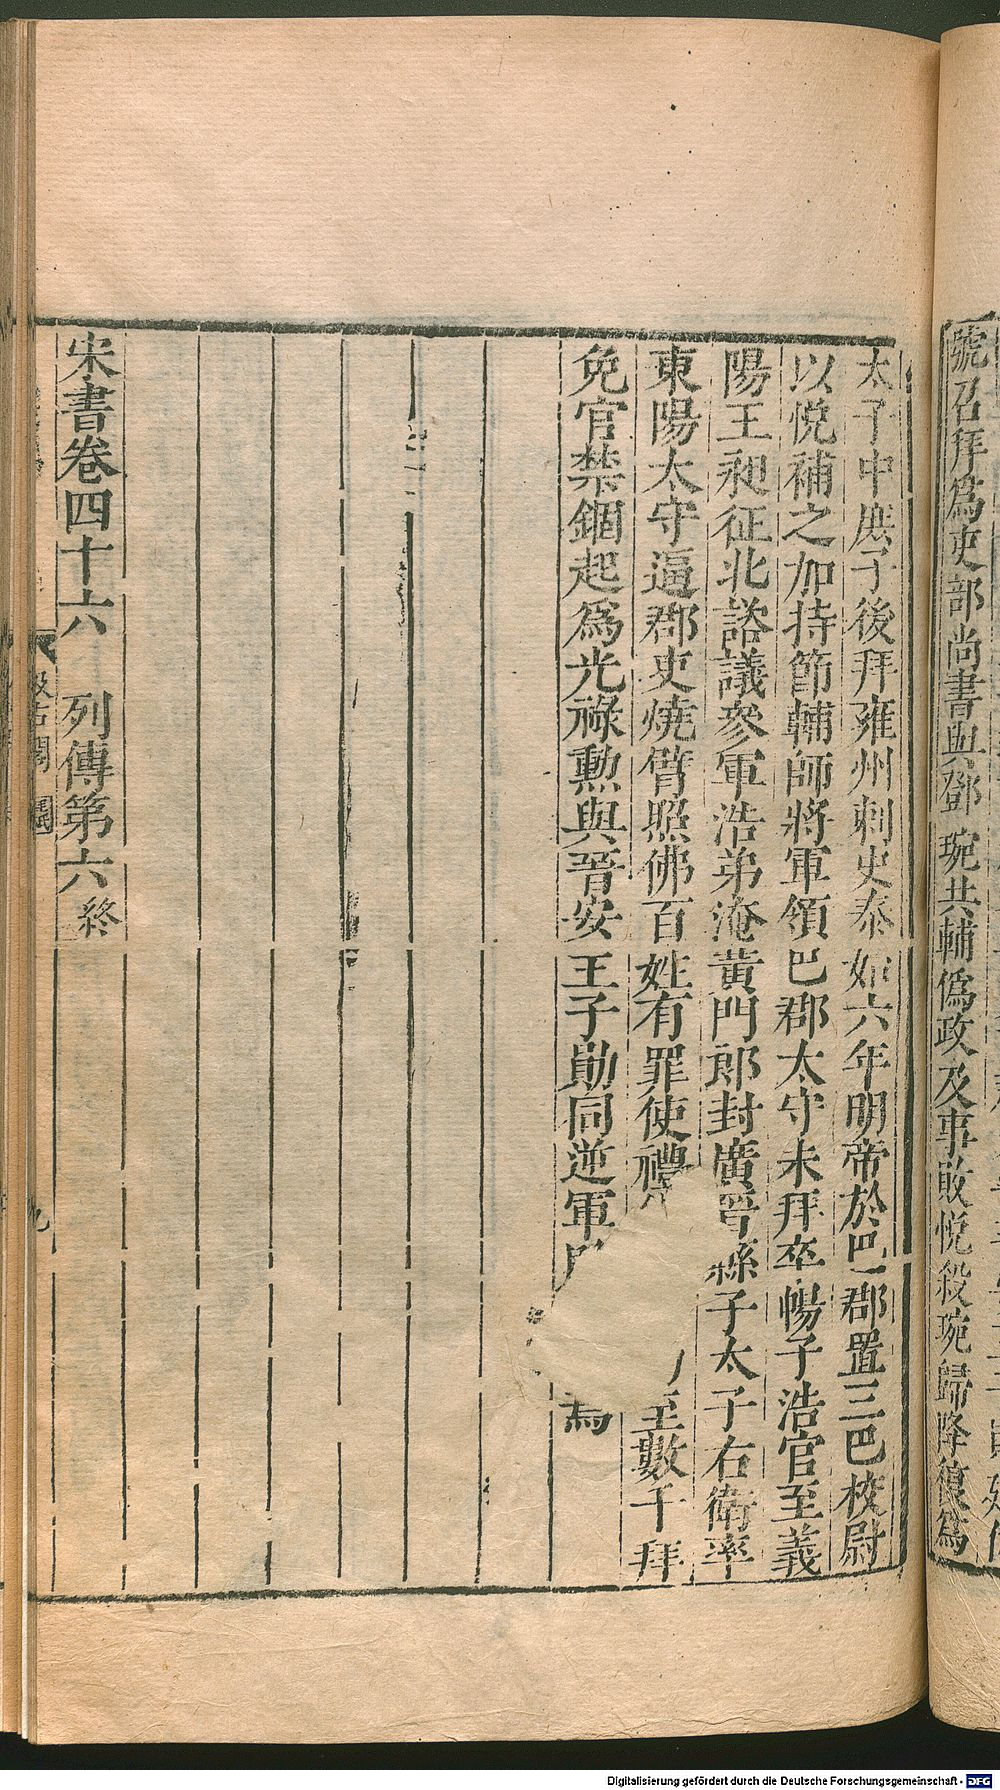 號召拜爲吏部尚書與鄧琬共輔僞政及事敗悅殺琬歸降復爲
太子中庶子後拜雍州刺史泰始六年明帝於巴郡置三巴校尉
以悅補之加持節輔師將軍領巴郡太守未拜卒暢子浩官至義
陽王昶征北諮議參軍浩弟淹黃門郎封廣晉縣子太子右衛率
東陽太守逼郡吏燒臂照佛百姓有罪使禮 至數千拜
免官禁錮起爲光祿勳與晉安王子勛同逆軍 爲
宋書卷四十六 列傳第六終
汲古閣 毛氏
九
Digitalisierung gefördert durch die Deutsche Forschungsgemeinschaft - DFG